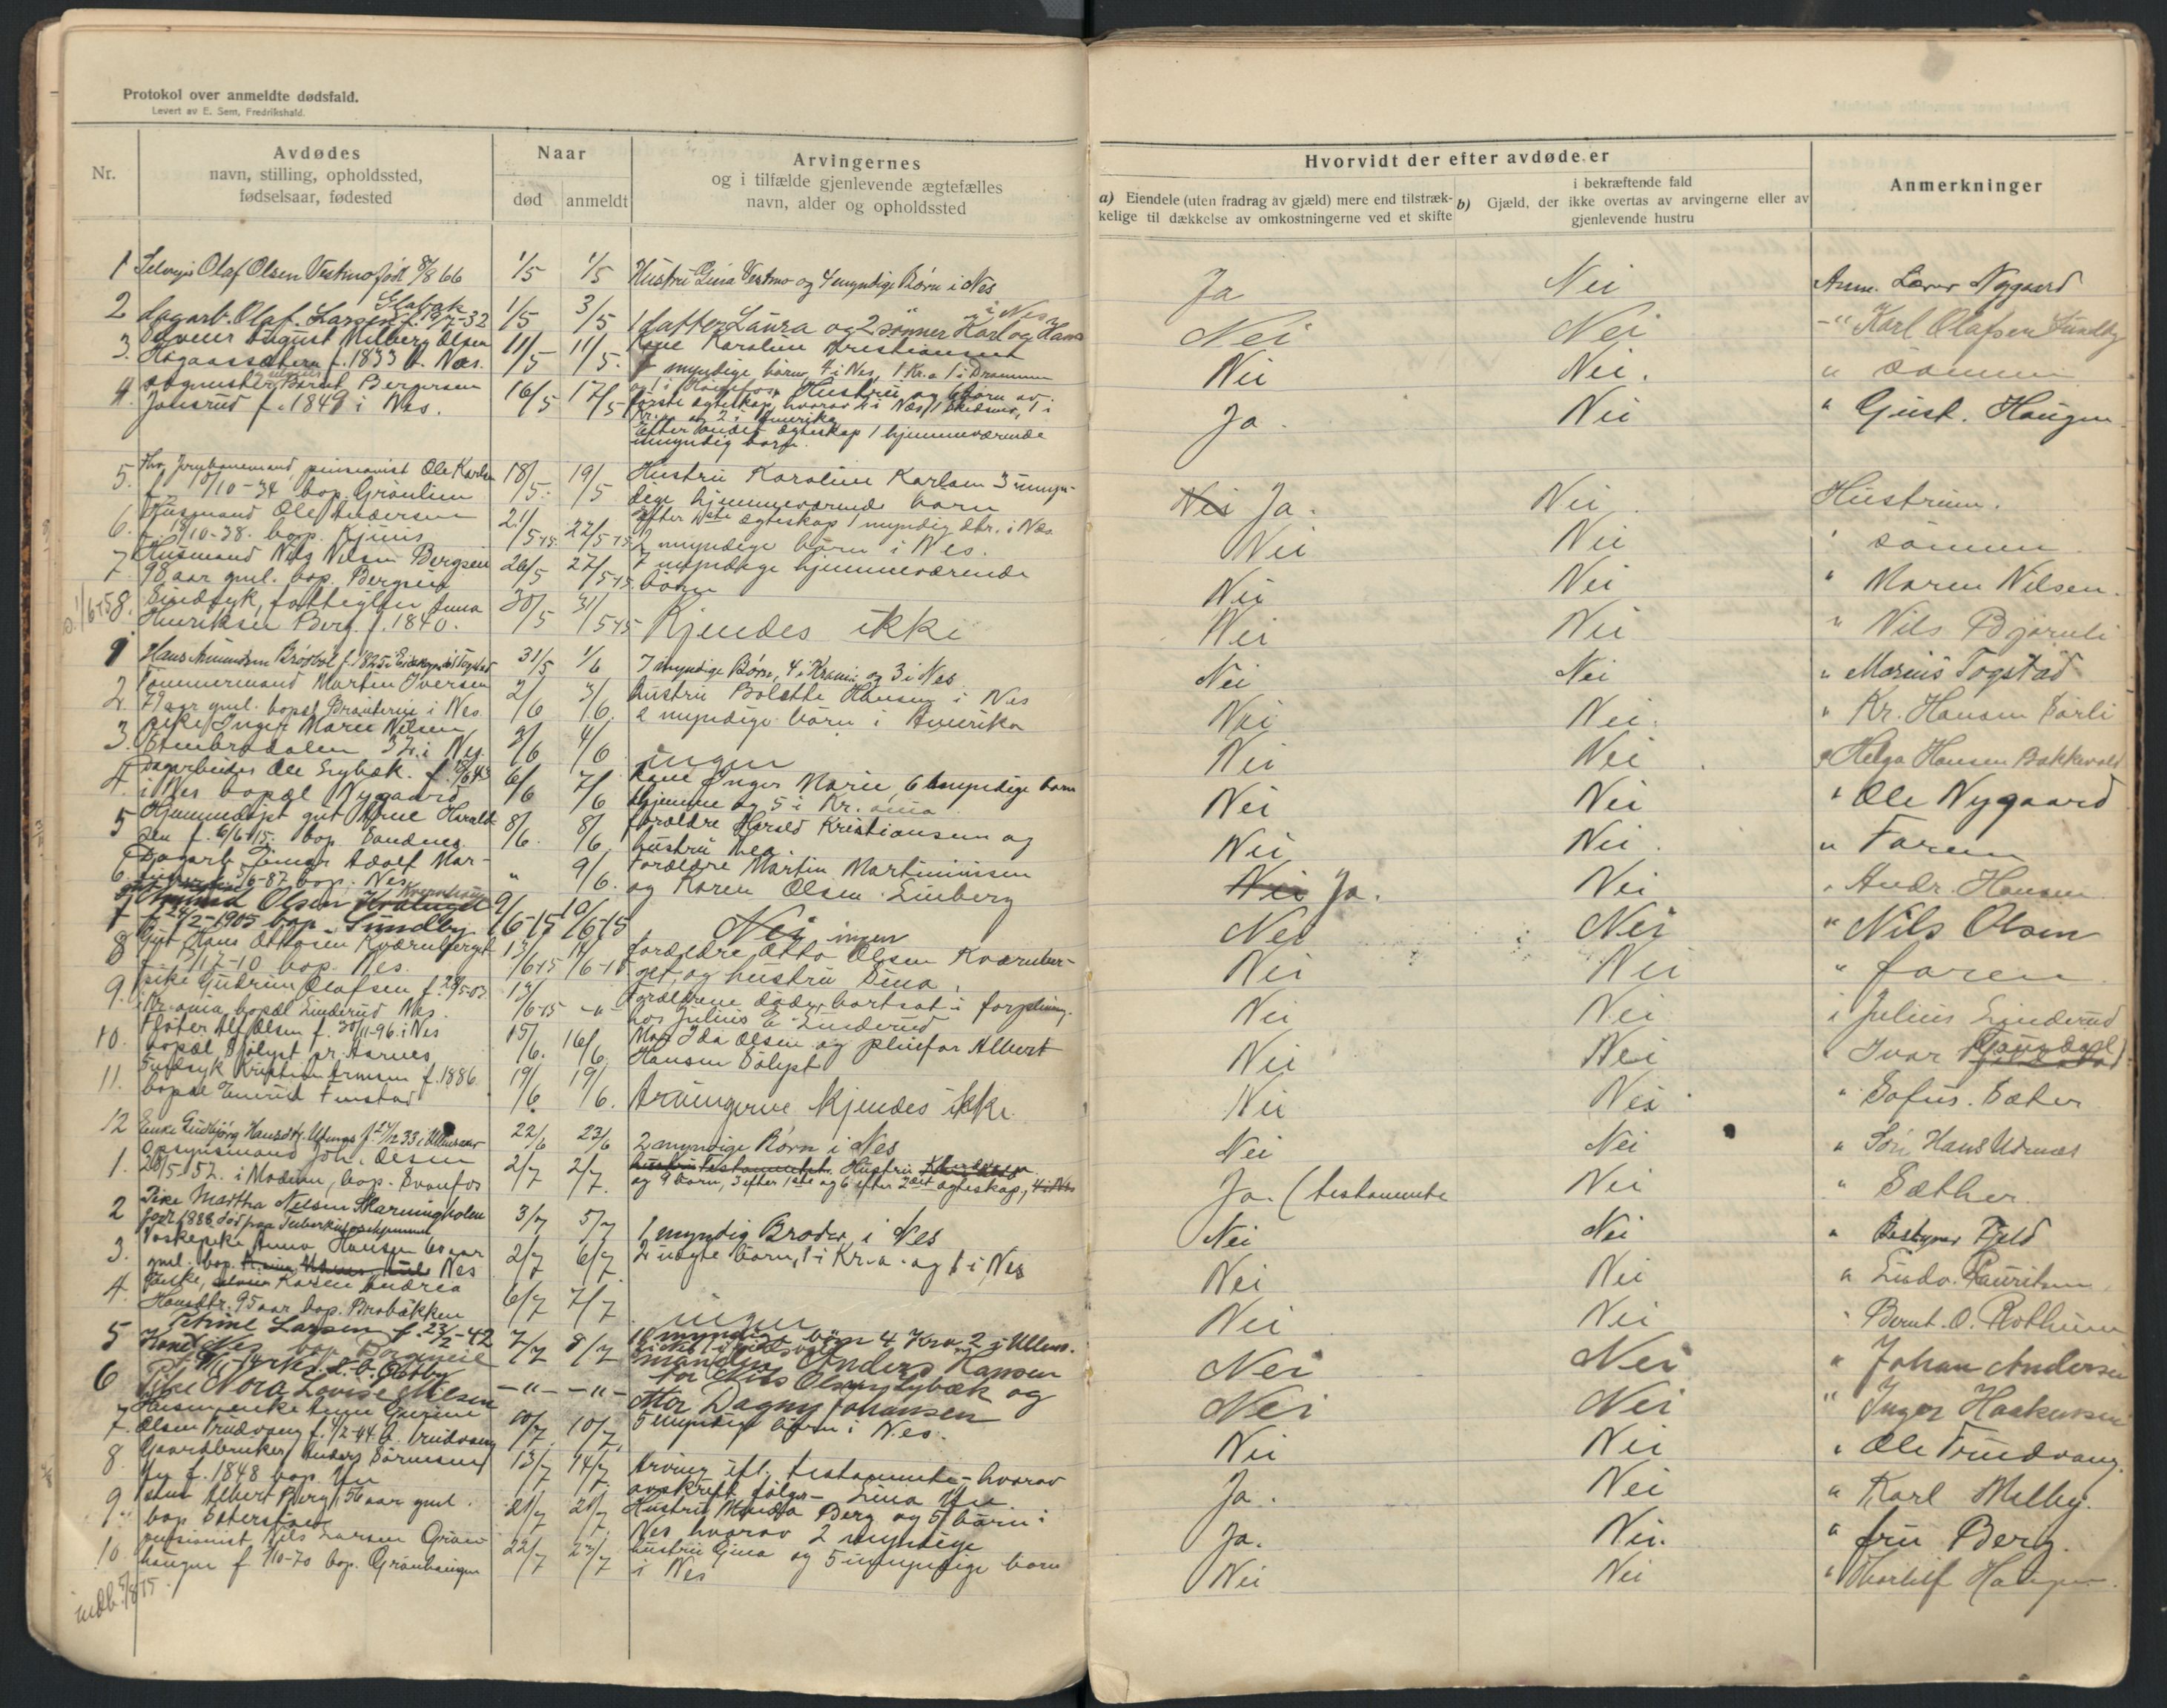 Protokol over anmeldte dødsfald.
Levert av E. Sem, Fredrikshald.
Nr.
Avdødes
navn, stilling, opholdssted,
fødselsaar, fødested
Naar
død
anmeldt
Arvingernes
og i tilfælde gjenlevende ægtefælles
navn, alder og opholdssted
Hvorvidt der efter avdøde er
a) Eiendele (uten fradrag av gjæld) mere end tilstræk-
kelige til dækkelse av omkostningerne ved et skifte
i bekræftende fald
b) Gjæld, der ikke overtas av arvingerne eller av
gjenlevende hustru
Anmerkninger
1 Selveier Olaf Olsen Vestmo født 8/8 66 1/5 1/5 Hustru Gina Vestmo og 4 myndige Børn i Nes Ja Nei Anm. Lærer Nygaard
2 Dagarb. Olaf Larsen 1/5 3/5 1 datter Laura og 2 sønner Karl og Hans i Nes Nei Nei -"- Karl Olafsen Sundby
3. Selveier August Milberg Olsen 11/5 11/5. Kone Karoline Kristiansen
Høgaassætern f. 1833 b. Nes. 7 myndige børn, 4 i Nes, 1 Kr.a 1 i Drammen Nei Nei. " sønnen
og 1 i Hønefos
4. Bernt Bergersen 16/5 17/5 Hustru og 6 børn av
Jonsrud f. 1849 i Nes. første ægteskap, hvorav 2 i Nes, 1 Skedsmo, 1 i
Kr.a og 2 i Amerika Ja. Nei " Gust. Haugen
Efter andet ægteskap 1 hjemmeværende
umyndig barn.
5. Fhv. Jernbanemand, pensionist Ole Karlsen 18/5. 19/5 Hustru Karoline Karlsen 3 umyn-
f. 10/10-34 bop. Grønlien dige hjemmeværende børn Nei Ja. Nei. Hustruen.
6. Husmand Ole Andersen 21/5-15. 22/5-15 Efter 1ste ægteskap 1 myndig dtr. i Nes
f. 13/10-38. bop. Kjuus 2 myndige børn i Nes. Nei Nei " sønnen.
7. Husmand Nils Nilsen Bergsein 26/5 27/5-15. 7 myndige hjemmeværende
98 aar gml. bop. Bergsein børn Nei Nei " Maren Nilsen.
8. Sindsyk, fattiglem Anna 30/5 31/5-15 Kjendes ikke
Henriksen Berg. f. 1840. Nei Nei " Nils Bjørnli
9 Hans Amundsen 31/5 1/6 7 myndige Børn, 4 i Krania og 3 i Nes Nei Nei " Marius Togstad
2. Tømmermand Martin Iversen 2/6 3/6. Hustru Bolette Hansen i Nes
79 aar gml. bopæl i Nes 2 myndige børn i Amerika Nei Nei. " Kr. Hansen Sørli
3. Pike Inger Marie Nilsen 3/6 4/6 ingen
Stenbrodalen i Nes Nei Nei " Helga Hansen Bakkevold
4. Dagarbeider Ole 6/6 7/6 Kone Inger Marie, 6 myndige barn
i Nes bopæl Nygaard hjemme og 5 i Kr.ania Nei Nei " Ole Nygaard
5 Hjemmedøpt gut Arne Harald- 8/6. 8/6 Forældre Harald Kristiansen og
sen f. 6/6-15. bop. Sandnes hustru Nei Nei. " Faren
6. Adolf Mar- " 9/6. Forældre Martin Martiniussen
f. 5/6-87 bop. Nes og Karen Olsen Linberg Nei Ja. Nei " Andr. Hansen
7 Olsen 9/6-15 10/6-15 Nei ingen
f. 24/2-1905 bop. Sundby Nei Nei " Nils Olsen
8 Gut Hans Ottosen Kværnberget 13/6-15 14/6-15 forældre Otto Olsen Kværnber-
f. 13/7-10 bop. Nes. get og hustru Lina. Nei Nei " faren
9. Pike Gudrun Olafsen f. 29/5-03 13/6-15 -"- Forældrene døde, bortsat i forpleining
i Kr.ania, bopæl Linderud Nes. hos Julius E. Linderud Nei Nei " Julius Linderud
10. Fløter Alf Olsen f. 30/11-96 i Nes 15/6. 16/6 Mor Ida Olsen og pleiefar Albert
bopæl Sølyst pr. Aarnes Hansen Sølyst Nei Nei " Ivar
11. Sindsyk Kristian Arnesen f. 1886 19/6 19/6. Arvingerne kjendes ikke.
bopæl Finstad Nei Nei " Sofus Sæter
12 Enke Gudbjørg Hansdtr. Udnæs f. 24/12 33 i Ullensaker 22/6 23/6 2 myndige Børn i Nes Nei Nei " Søn Hans Udnæs
1. Opsynsmand Joh. Olsen 2/7 2/7. Hustru
28/5-57. i Modum, bop. Svanfos og 9 børn, 3 efter 1ste og 6 efter 2det ægteskap, 4 i Nes Ja. (testamente Nei " Sæther.
2 Pike Martha Nilsen 3/7 5/7 1 myndig Broder i Nes Nei Nei " Bestyrer Fjeld
født 1886 død paa Tuberkulosehjemmet
3. Vaskepike Anna Hansen 60 aar 2/7 6/7. 2 uægte barn, 1 i Kr.a. og 1 i Nes
gml. bop. Nes Nei Nei " Ludv. Lauritsen
4. Karen Andrea 6/7 7/7. ingen
Hansdtr. 95 aar bop. Brobakken Nei Nei " Bernt. O.
5 Petrine Larsen f. 23/2-42 7/7 8/7 10 myndige børn 4 Kra, 2 i Ullens.
Kone manden Anders Hansen Nei Nei " Johan Andersen
6 Pike Nora Lovise Nilsen -"- -"- far Nils Olsen Lybæk og
Mor Dagny Johansen Nei Nei " Inger Haakensen
7. 10/7. 10/7. 5 myndige børn i Nes.
Olsen Trudvang f. 4/2-44. b. Trudvang Nei Nei " Ole Trudvang.
8. Gaardbruker Anders Sørensen 13/7 14/7. Arving efl. testamente - hvorav
f. 1848 bop. avskrift følger - Ja. Nei " Karl Melby.
9. Albert Berg, 56 aar gml. 21/7 21/7. Hustru Berg og 5 børn i
bop. Nes hvorav 2 myndige Ja. Nei. " fru Berg.
10. pensionist Nils Larsen Grøn- 22/7 27/7 hustru Gina og 5 umyndige børn
haugen f. 7/10-70 bop. Grønhaugen i Nes Nei Nei " Thorleif Haugen.
indb. 5/8 15.